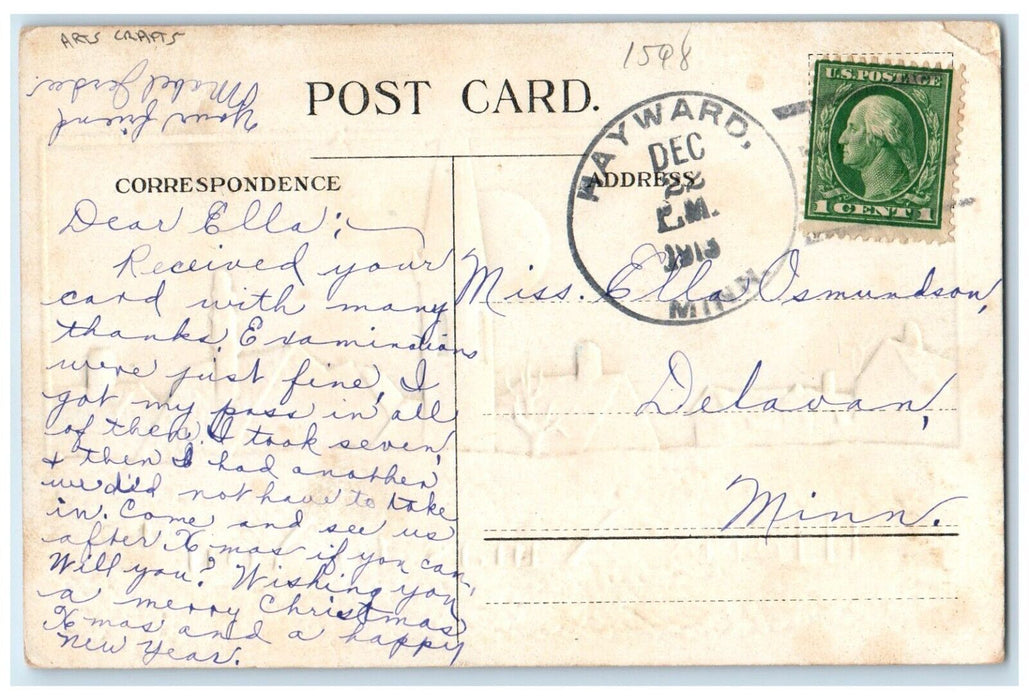 ARTS CRAFTS
1598
Your friend
Mabel
POST CARD.
CORRESPONDENCE
ADDRESS
HAYWARD,
DEC
22
P.M.
1913
MINN.
U.S. POSTAGE
1 CENT 1
Dear Ella;
Received your
card with many
thanks. Examinations
were just fine, I
got my pass in all
of them. I took seven,
+ then I had another
we did not have to take
in. Come and see us
after Xmas if you can,
Will you? Wishing you
a merry Christmas
Xmas and a happy
New Year.
Miss. Ella Osmundson,
Delavan,
Minn.